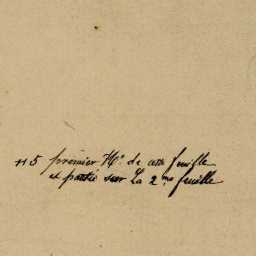 115 premier N.° de cette feuille
et partie sur La 2.me feuille